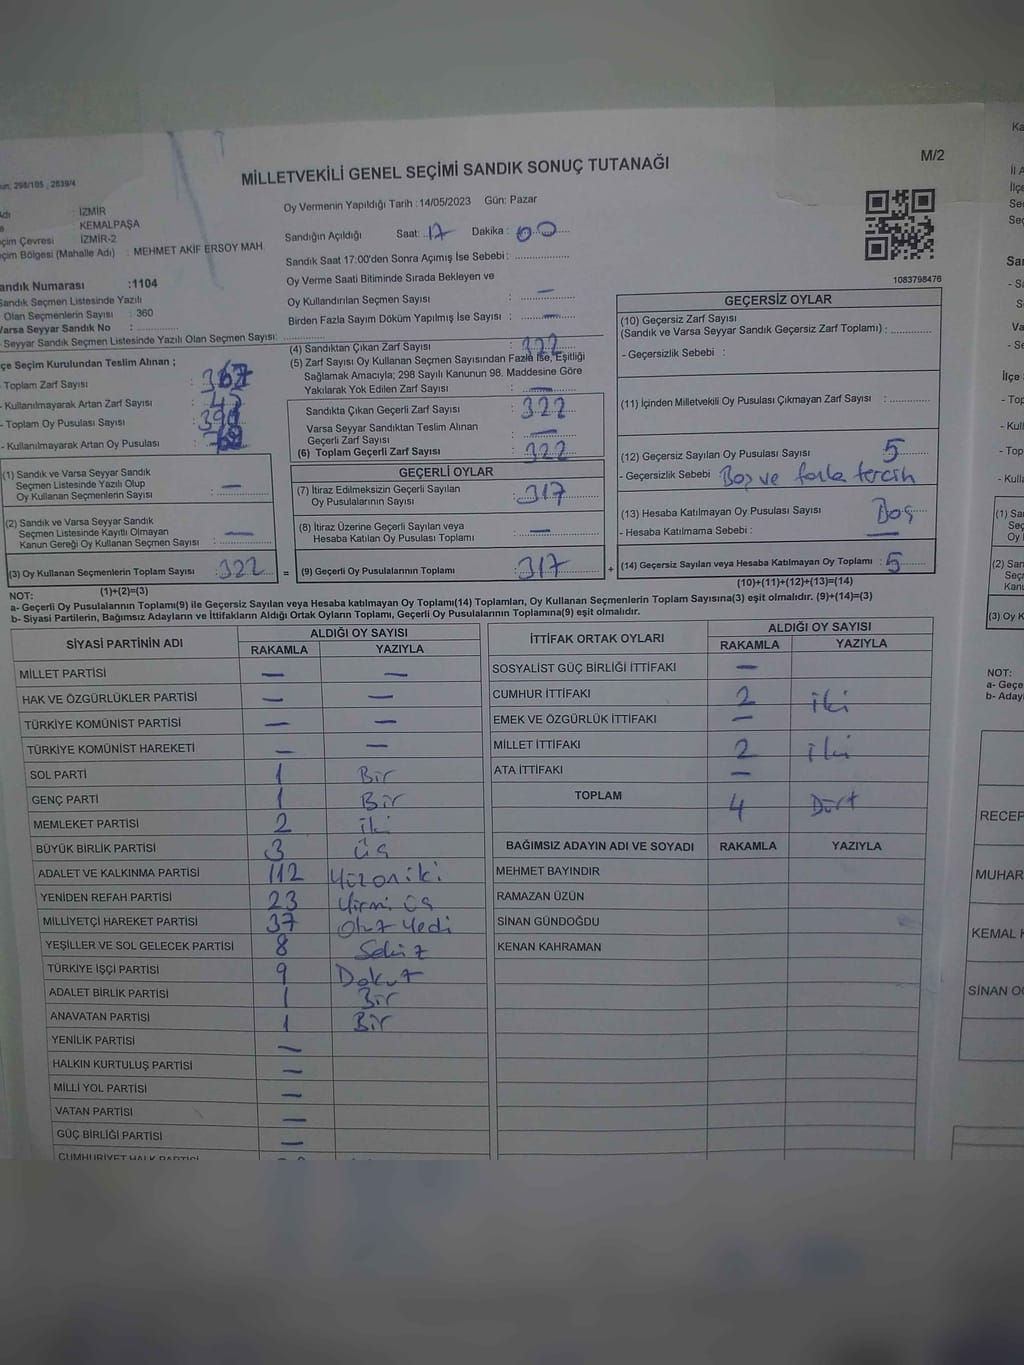 M/2
MİLLETVEKİLİ GENEL SEÇİMİ SANDIK SONUÇ TUTANAĞI
298/105 , 2839/4
İZMİR
KEMALPAŞA
çim Çevresi İZMİR-2
çim Bölgesi (Mahalle Adı) : MEHMET AKİF ERSOY MAH.
Oy Vermenin Yapıldığı Tarih : 14/05/2023 Gün: Pazar
Sandığın Açıldığı Saat: 17 Dakika: 00
Sandık Saat 17:00'den Sonra Açımış İse Sebebi:
Oy Verme Saati Bitiminde Sırada Bekleyen ve
Oy Kullandırılan Seçmen Sayısı : —
Birden Fazla Sayım Döküm Yapılmış İse Sayısı : —
1083798476
andık Numarası :1104
Sandık Seçmen Listesinde Yazılı
Olan Seçmenlerin Sayısı : 360
Varsa Seyyar Sandık No :
- Seyyar Sandık Seçmen Listesinde Yazılı Olan Seçmen Sayısı:
çe Seçim Kurulundan Teslim Alınan ;
Toplam Zarf Sayısı : 367
- Kullanılmayarak Artan Zarf Sayısı : 45
- Toplam Oy Pusulası Sayısı :
- Kullanılmayarak Artan Oy Pusulası :
(1) Sandık ve Varsa Seyyar Sandık
Seçmen Listesinde Yazılı Olup
Oy Kullanan Seçmenlerin Sayısı : —
(2) Sandık ve Varsa Seyyar Sandık
Seçmen Listesinde Kayıtlı Olmayan
Kanun Gereği Oy Kullanan Seçmen Sayısı : —
(3) Oy Kullanan Seçmenlerin Toplam Sayısı : 322
(1)+(2)=(3)
(4) Sandıktan Çıkan Zarf Sayısı : 322
(5) Zarf Sayısı Oy Kullanan Seçmen Sayısından Fazla İse, Eşitliği
Sağlamak Amacıyla; 298 Sayılı Kanunun 98. Maddesine Göre
Yakılarak Yok Edilen Zarf Sayısı : —
Sandıkta Çıkan Geçerli Zarf Sayısı : 322
Varsa Seyyar Sandıktan Teslim Alınan
Geçerli Zarf Sayısı : —
(6) Toplam Geçerli Zarf Sayısı : 322
GEÇERLİ OYLAR
(7) İtiraz Edilmeksizin Geçerli Sayılan
Oy Pusulalarının Sayısı : 317
(8) İtiraz Üzerine Geçerli Sayılan veya
Hesaba Katılan Oy Pusulası Toplamı : —
= (9) Geçerli Oy Pusulalarının Toplamı : 317 +
GEÇERSİZ OYLAR
(10) Geçersiz Zarf Sayısı
(Sandık ve Varsa Seyyar Sandık Geçersiz Zarf Toplamı) :
- Geçersizlik Sebebi :
(11) İçinden Milletvekili Oy Pusulası Çıkmayan Zarf Sayısı :
(12) Geçersiz Sayılan Oy Pusulası Sayısı : 5
- Geçersizlik Sebebi : Boş ve fazla tercih
(13) Hesaba Katılmayan Oy Pusulası Sayısı : Boş
- Hesaba Katılmama Sebebi : —
(14) Geçersiz Sayılan veya Hesaba Katılmayan Oy Toplamı : 5
(10)+(11)+(12)+(13)=(14)
NOT:
a- Geçerli Oy Pusulalarının Toplamı(9) ile Geçersiz Sayılan veya Hesaba katılmayan Oy Toplamı(14) Toplamları, Oy Kullanan Seçmenlerin Toplam Sayısına(3) eşit olmalıdır. (9)+(14)=(3)
b- Siyasi Partilerin, Bağımsız Adayların ve İttifakların Aldığı Ortak Oyların Toplamı, Geçerli Oy Pusulalarının Toplamına(9) eşit olmalıdır.
SİYASİ PARTİNİN ADI ALDIĞI OY SAYISI
RAKAMLA YAZIYLA
MİLLET PARTİSİ — —
HAK VE ÖZGÜRLÜKLER PARTİSİ — —
TÜRKİYE KOMÜNİST PARTİSİ — —
TÜRKİYE KOMÜNİST HAREKETİ — —
SOL PARTİ 1 Bir
GENÇ PARTİ 1 Bir
MEMLEKET PARTİSİ 2 iki
BÜYÜK BİRLİK PARTİSİ 3 üç
ADALET VE KALKINMA PARTİSİ 112 Yüzoniki
YENİDEN REFAH PARTİSİ 23 Yirmi üç
MİLLİYETÇİ HAREKET PARTİSİ 37 Otuz Yedi
YEŞİLLER VE SOL GELECEK PARTİSİ 8 Sekiz
TÜRKİYE İŞÇİ PARTİSİ 9 Dokuz
ADALET BİRLİK PARTİSİ 1 Bir
ANAVATAN PARTİSİ 1 Bir
YENİLİK PARTİSİ —
HALKIN KURTULUŞ PARTİSİ —
MİLLİ YOL PARTİSİ —
VATAN PARTİSİ —
GÜÇ BİRLİĞİ PARTİSİ —
CUMHURİYET HALK PARTİSİ
İTTİFAK ORTAK OYLARI ALDIĞI OY SAYISI
RAKAMLA YAZIYLA
SOSYALİST GÜÇ BİRLİĞİ İTTİFAKI —
CUMHUR İTTİFAKI 2 iki
EMEK VE ÖZGÜRLÜK İTTİFAKI —
MİLLET İTTİFAKI 2 iki
ATA İTTİFAKI —
TOPLAM 4 Dört
BAĞIMSIZ ADAYIN ADI VE SOYADI RAKAMLA YAZIYLA
MEHMET BAYINDIR
RAMAZAN ÜZÜN
SİNAN GÜNDOĞDU
KENAN KAHRAMAN
Ka
İl A
İlçe
Seç
San
Va
İlçe
- Top
- Kull
- Top
- Kulla
(1) Sa
Seç
Oy
(2) San
Seç
Kanu
(3) Oy K
NOT:
a- Geçe
b- Aday
RECEP
MUHAR
KEMAL K
SİNAN O